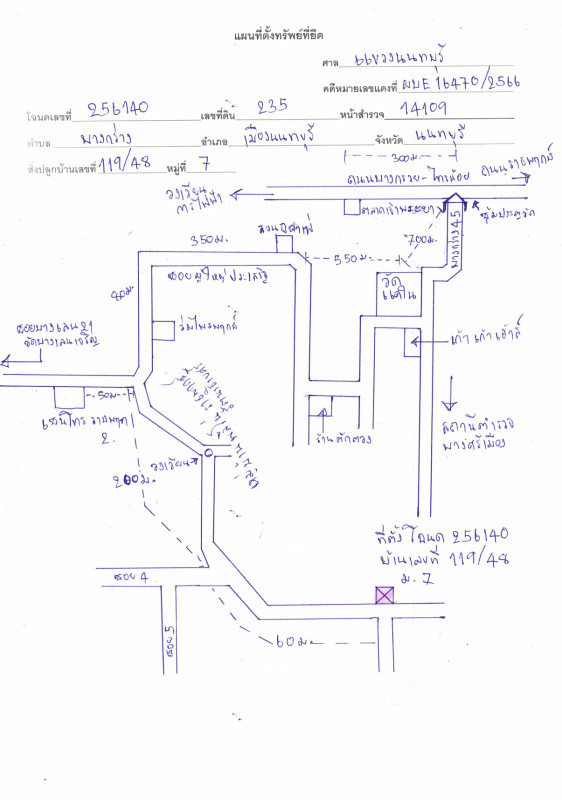 แผนที่ตั้งทรัพย์ที่ยึด
ศาล แขวงนนทบุรี
คดีหมายเลขแดงที่ ผบE16470/2566
โฉนดเลขที่ 256140 เลขที่ดิน 235 หน้าสำรวจ 14109
ตำบล บางกร่าง อำเภอ เมืองนนทบุรี จังหวัด นนทบุรี
สิ่งปลูกบ้านเลขที่ 119/48 หมู่ที่ 7
300ม.
ถนนบางกรวย-ไทรน้อย ถนนราชพฤกษ์
วงเวียน
การไฟฟ้า
ตลาดเจ้าพระยา
ซุ้มประตูวัด
700ม.
บางกร่าง 45
350ม.
550ม.
ซอยผู้ใหญ่ประเสริฐ
วัด
แคใน
ร่มไพรพฤกษ์
ซอยบางเลน 21
วัดบางเลนเจริญ
50ม.
2.
200ม.
วงเวียน
ร้านคำตวง
สถานีตำรวจ
บางศรีเมือง
ที่ตั้งโฉนด 256140
บ้านเลขที่ 119/48
ม. 7
ซอย 4
ซอย 5
60ม.